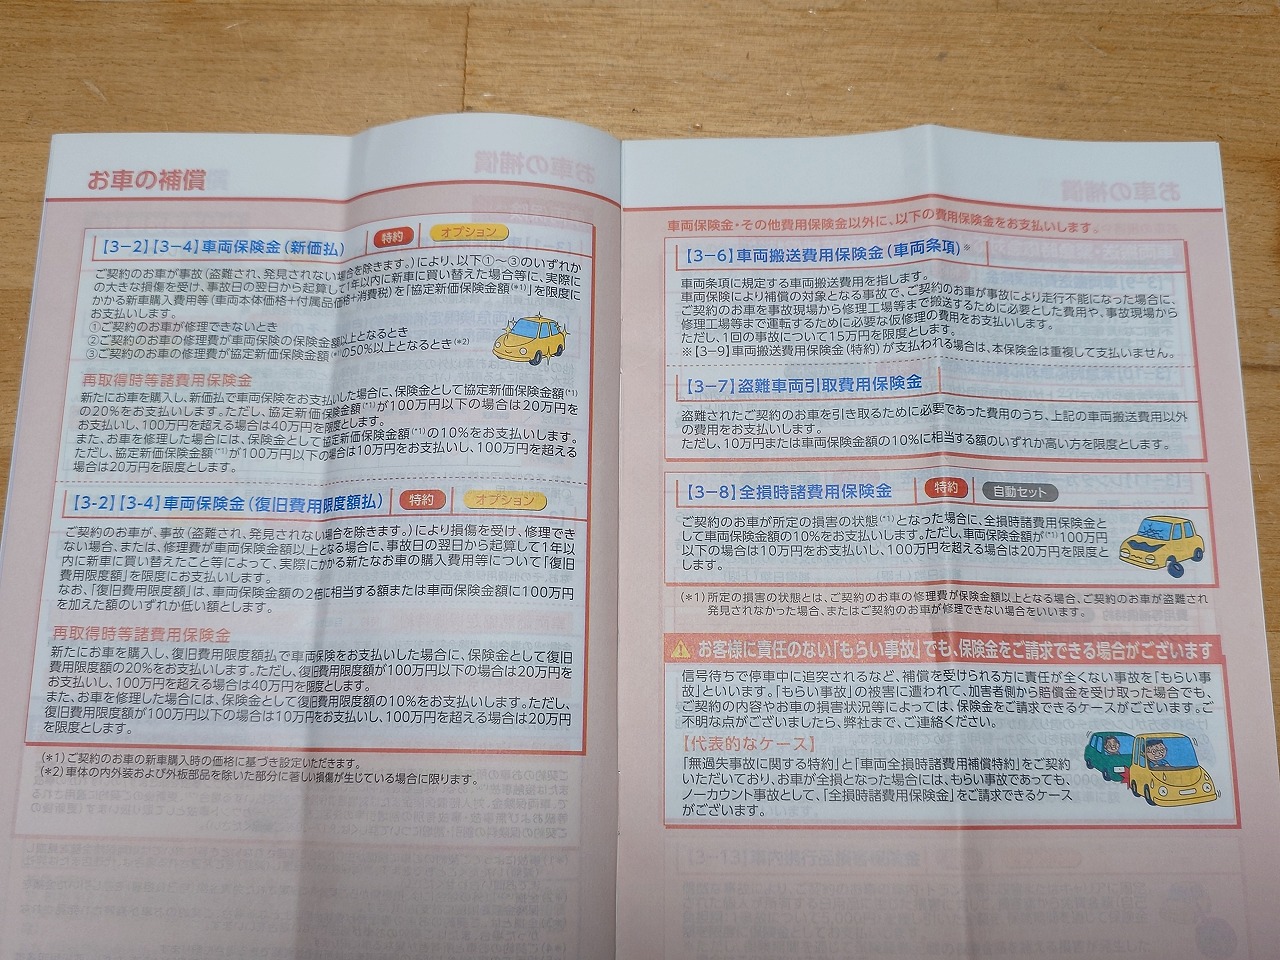 お車の補償
【3-2】【3-4】車両保険金（新価払） 特約 オプション
ご契約のお車が事故（盗難され、発見されない場合を除きます。）により、以下①～③のいずれか
の大きな損傷を受け、事故日の翌日から起算して1年以内に新車に買い替えた場合等に、実際に
かかる新車購入費用等（車両本体価格＋付属品価格＋消費税）を「協定新価保険金額(*1)」を限度に
お支払いします。
①ご契約のお車が修理できないとき
②ご契約のお車の修理費が車両保険の保険金額以上となるとき
③ご契約のお車の修理費が協定新価保険金額(*1)の50％以上となるとき(*2)
再取得時等諸費用保険金
新たにお車を購入し、新価払で車両保険をお支払いした場合に、保険金として協定新価保険金額(*1)
の20％をお支払いします。ただし、協定新価保険金額(*1)が100万円以下の場合は20万円を
お支払いし、100万円を超える場合は40万円を限度とします。
また、お車を修理した場合には、保険金として協定新価保険金額(*1)の10％をお支払いします。
ただし、協定新価保険金額(*1)が100万円以下の場合は10万円をお支払いし、100万円を超える
場合は20万円を限度とします。
【3-2】【3-4】車両保険金（復旧費用限度額払） 特約 オプション
ご契約のお車が、事故（盗難され、発見されない場合を除きます。）により損傷を受け、修理でき
ない場合、または、修理費が車両保険金額以上となる場合に、事故日の翌日から起算して1年以
内に新車に買い替えたこと等によって、実際にかかる新たなお車の購入費用等について「復旧
費用限度額」を限度にお支払いします。
なお、「復旧費用限度額」は、車両保険金額の2倍に相当する額または車両保険金額に100万円
を加えた額のいずれか低い額とします。
再取得時等諸費用保険金
新たにお車を購入し、復旧費用限度額払で車両保険をお支払いした場合に、保険金として復旧
費用限度額の20％をお支払いします。ただし、復旧費用限度額が100万円以下の場合は20万円を
お支払いし、100万円を超える場合は40万円を限度とします。
また、お車を修理した場合には、保険金として復旧費用限度額の10％をお支払いします。ただし、
復旧費用限度額が100万円以下の場合は10万円をお支払いし、100万円を超える場合は20万円
を限度とします。
(*1)ご契約のお車の新車購入時の価格に基づき設定いただきます。
(*2)車体の内外装および外板部品を除いた部分に著しい損傷が生じている場合に限ります。
車両保険金・その他費用保険金以外に、以下の費用保険金をお支払いします。
【3-6】車両搬送費用保険金（車両条項）※
車両条項に規定する車両搬送費用を指します。
車両保険により補償の対象となる事故で、ご契約のお車が事故により走行不能になった場合に、
ご契約のお車を事故現場から修理工場等まで搬送するために必要とした費用や、事故現場から
修理工場等まで運転するために必要な仮修理の費用をお支払いします。
ただし、1回の事故について15万円を限度とします。
※【3-9】車両搬送費用保険金（特約）が支払われる場合は、本保険金は重複して支払いません。
【3-7】盗難車両引取費用保険金
盗難されたご契約のお車を引き取るために必要であった費用のうち、上記の車両搬送費用以外
の費用をお支払いします。
ただし、10万円または車両保険金額の10％に相当する額のいずれか高い方を限度とします。
【3-8】全損時諸費用保険金 特約 自動セット
ご契約のお車が所定の損害の状態(*1)となった場合に、全損時諸費用保険金と
して車両保険金額の10％をお支払いします。ただし、車両保険金額が(*1)100万円
以下の場合は10万円をお支払いし、100万円を超える場合は20万円を限度と
します。
(*1)所定の損害の状態とは、ご契約のお車の修理費が保険金額以上となる場合、ご契約のお車が盗難され
発見されなかった場合、またはご契約のお車が修理できない場合をいいます。
お客様に責任のない「もらい事故」でも、保険金をご請求できる場合がございます
信号待ちで停車中に追突されるなど、補償を受けられる方に責任が全くない事故を「もらい事
故」といいます。「もらい事故」の被害に遭われて、加害者側から賠償金を受け取った場合でも、
ご契約の内容やお車の損害状況等によっては、保険金をご請求できるケースがございます。ご
不明な点がございましたら、弊社まで、ご連絡ください。
【代表的なケース】
「無過失事故に関する特約」と「車両全損時諸費用補償特約」をご契約
いただいており、お車が全損となった場合には、もらい事故であっても、
ノーカウント事故として、「全損時諸費用保険金」をご請求できるケース
がございます。